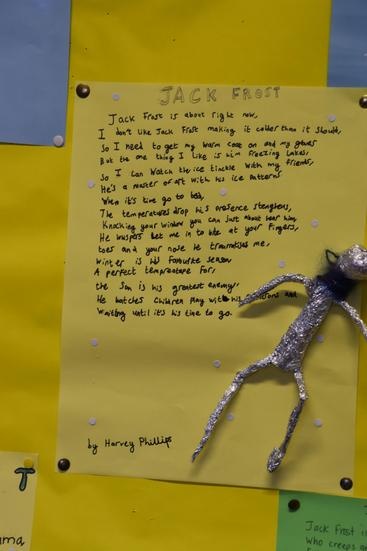 JACK FROST
Jack Frost is about right now,
I don't like Jack Frost making it colder than it should,
So I need to get my warm coat on and my gloves
But the one thing I like is him freezing lakes,
So I can watch the ice tinkle with my friends,
He's a master of art with his ice patterns
When it's time go to bed,
The temperatures drop his presence stengthens,
Knocking your window you can just about hear him,
He whispers let me in to bite at your fingers,
toes and your nose He traumatises me,
Winter is his favourite season,
A perfect tempreatape for,
the Sun is his greatest enemy,
He watches children play with his and
Waiting until it's his time to go.
by Harvey Phillips
T
ama
Jack Frost i
Who creeps a